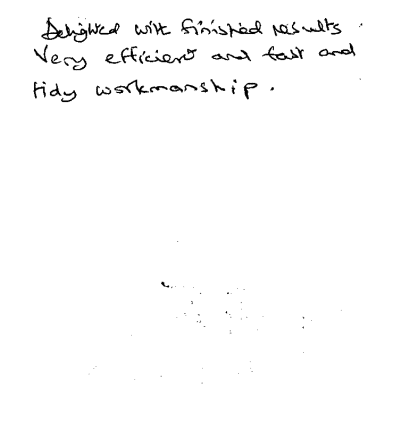 Delighted with finished results.
Very efficient and fast and
tidy workmanship.